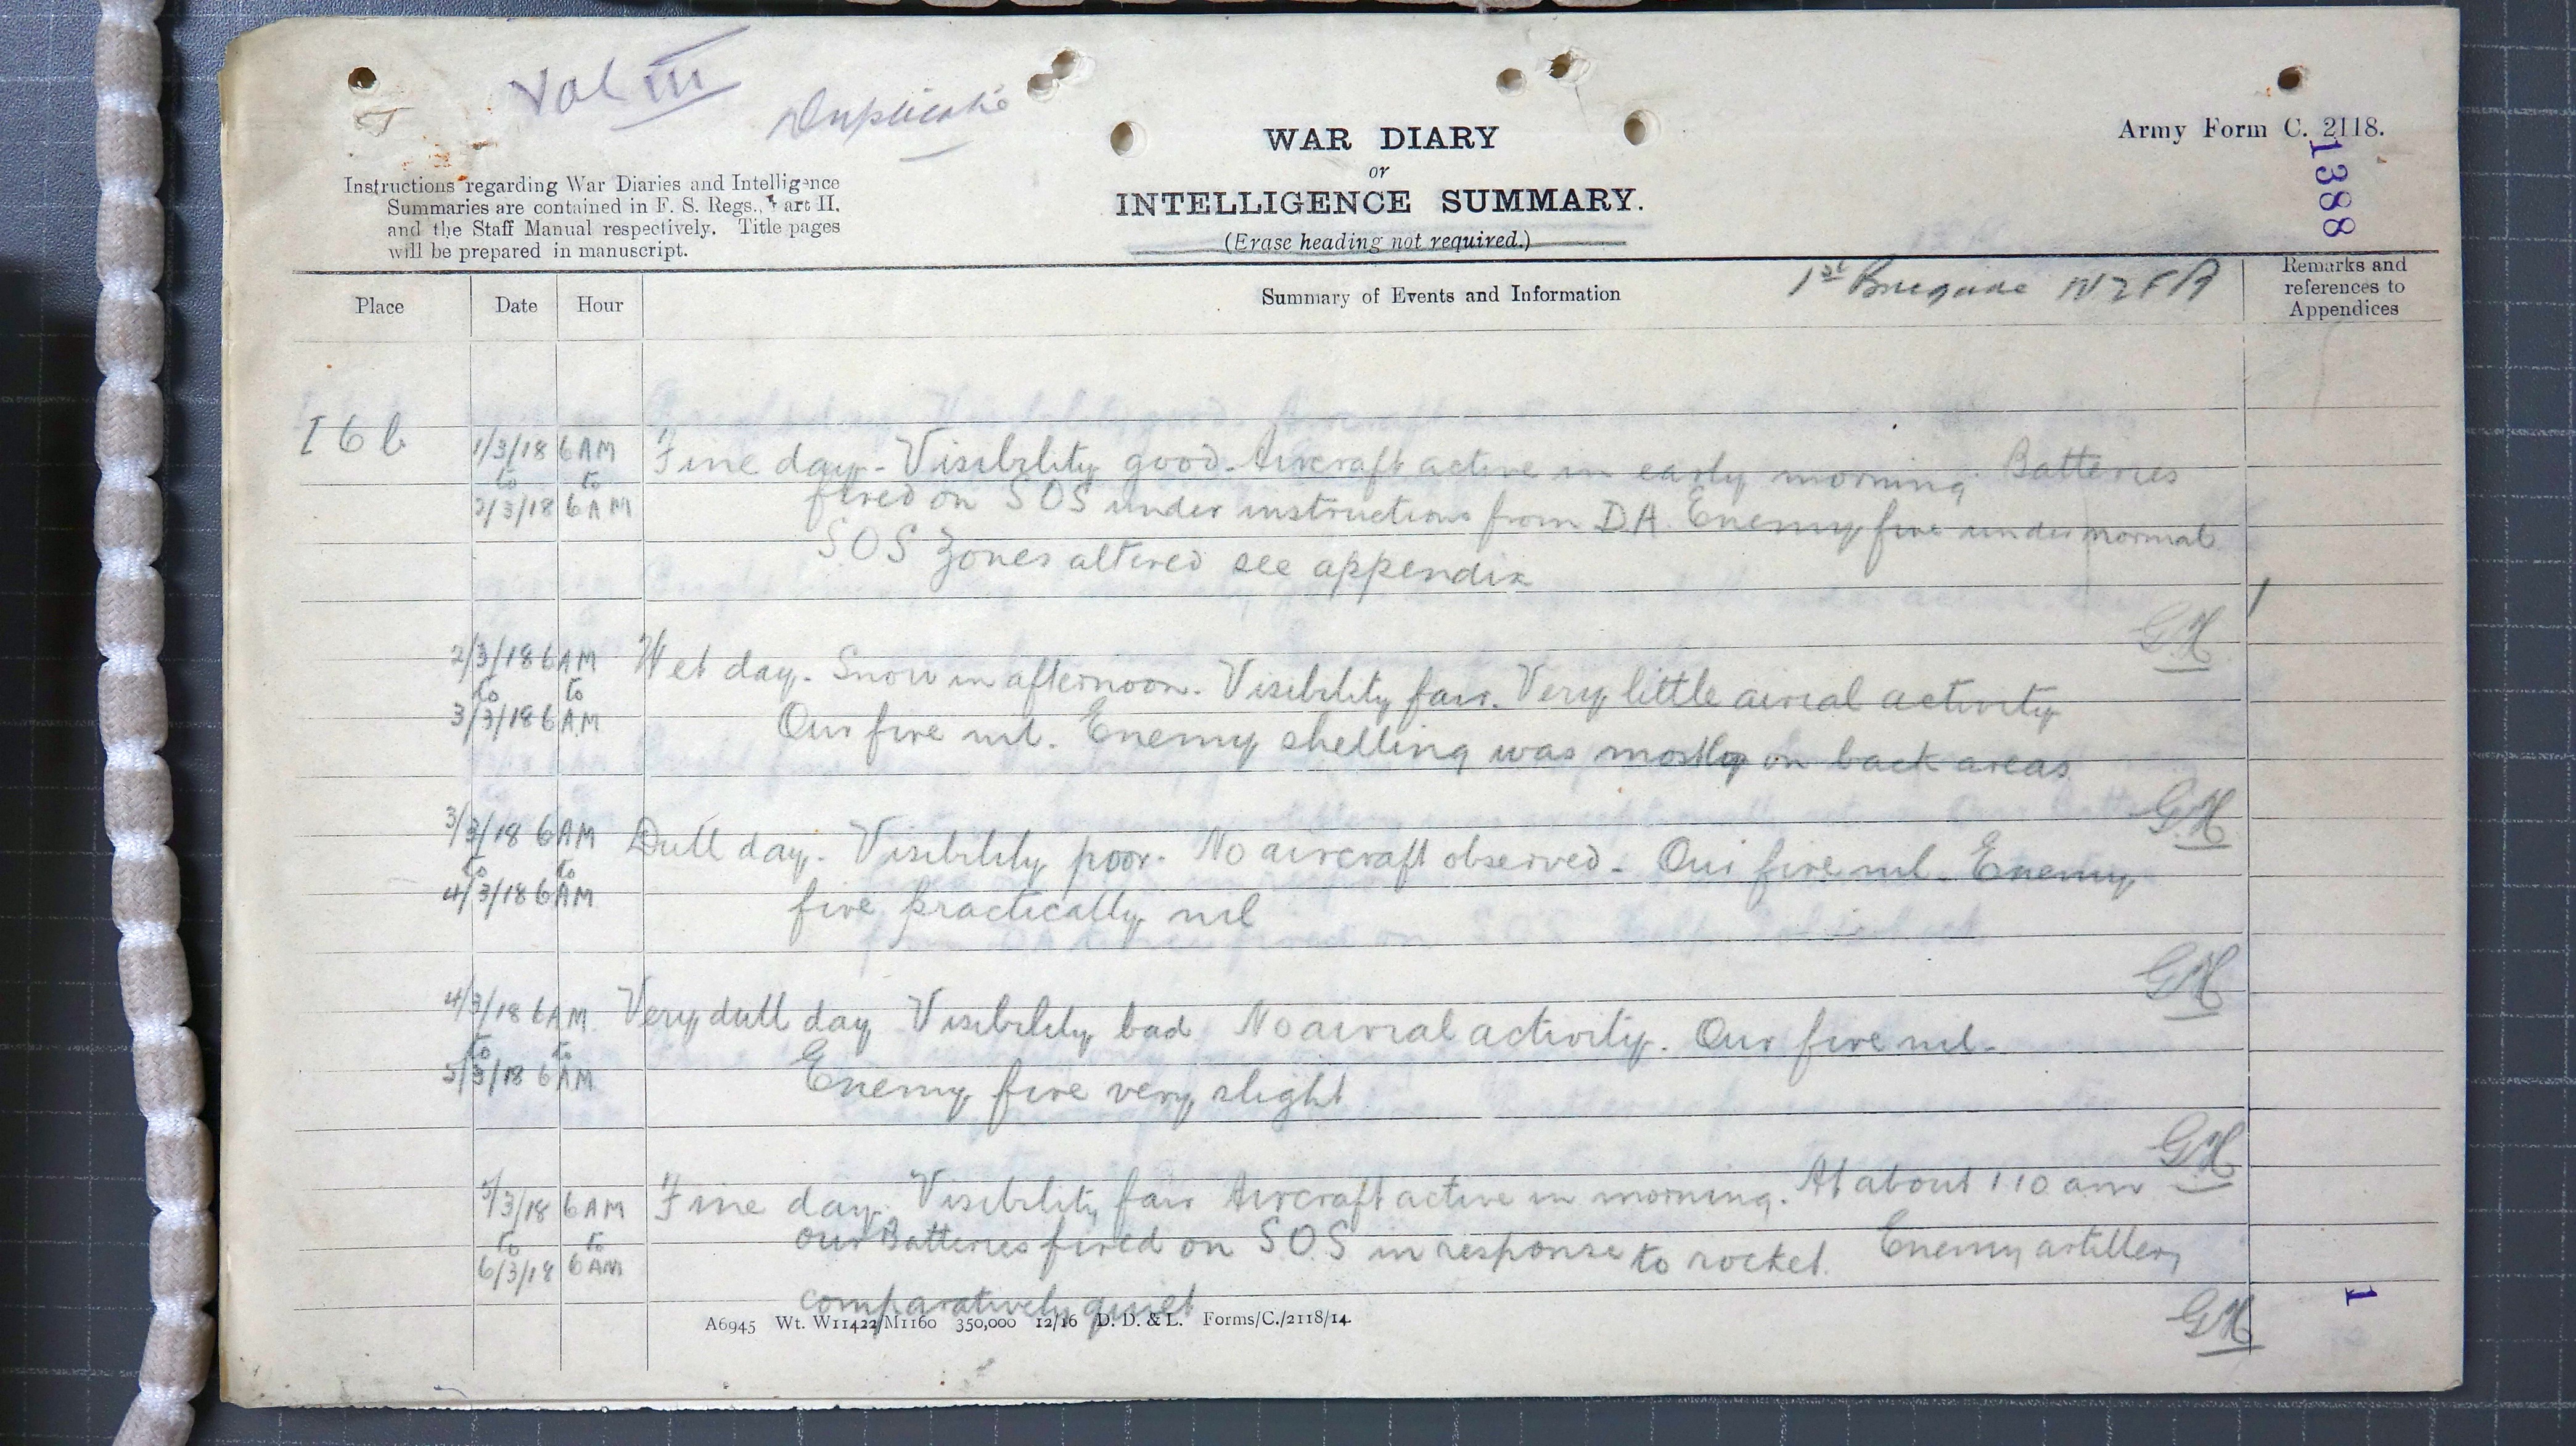 Vol III
Duplicate
WAR DIARY
or
INTELLIGENCE SUMMARY.
(Erase heading not required.)
Army Form C. 2118.
1388
Instructions regarding War Diaries and Intelligence
Summaries are contained in F. S. Regs., Part II.
and the Staff Manual respectively. Title pages
will be prepared in manuscript.
Place Date Hour Summary of Events and Information 1st Brigade NZFA Remarks and
references to
Appendices
I 6 b
1/3/18 6 AM Fine day - Visibility good. Aircraft active in early morning. Batteries
to to
2/3/18 6 AM fired on SOS under instructions from DA. Enemy fire under normal
SOS Zones altered see appendix
1
GH
2/3/18 6 AM Wet day. Snow in afternoon. Visibility fair. Very little airial activity
to to
3/3/18 6 AM Our fire nil. Enemy shelling was mostly on back areas
GH
3/3/18 6 AM Dull day. Visibility poor. No aircraft observed. Our fire nil. Enemy
to to
4/3/18 6 AM fire practically nil
GH
4/3/18 6 AM Very dull day Visibility bad No airial activity. Our fire nil.
to to
5/3/18 6 AM Enemy fire very slight
GH
5/3/18 6 AM Fine day. Visibility fair Aircraft active in morning. At about 1 10 am
to to
6/3/18 6 AM our Batteries fired on S.O.S in response to rocket. Enemy artillery
comparatively quiet
GH
1
A6945 Wt. W11422/M1160 350,000 12/16 D. D. & L. Forms/C./2118/14.